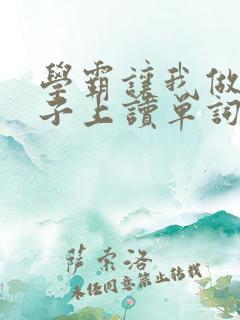 學霸讓我做
子上讀單詞
薩索洛
未经同意禁止转载